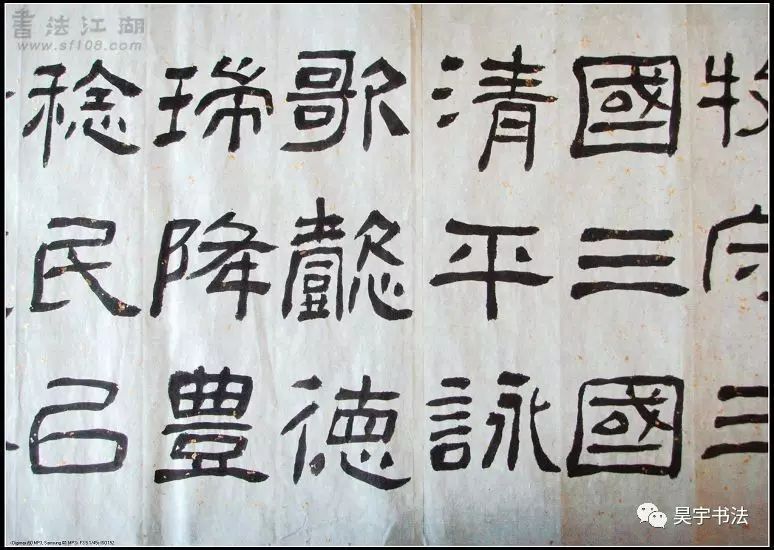 書法江湖
www.sf108.com
牧守三
國三國
清平詠
歌懿德
瑞降豊
稔民㠯
昊宇书法